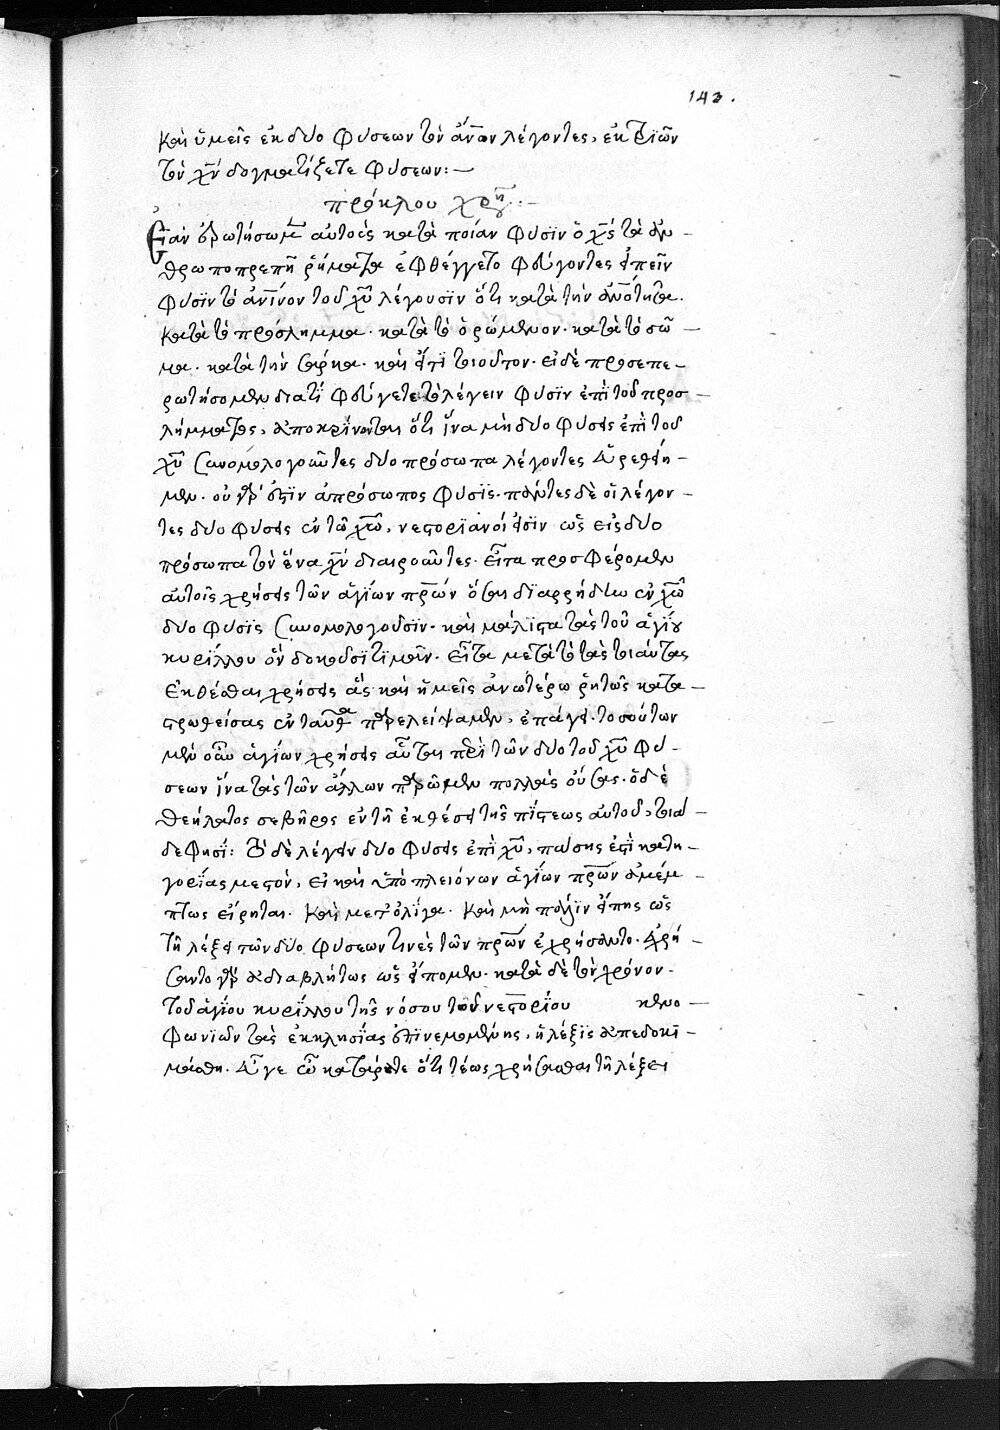 143.
καὶ ὑμεῖς ἐκ δύο φύσεων τὸν ἄν̅ον λέγοντες, ἐκ τριῶν
τὸν χ̅ν δογματίζετε φύσεων:—
πρόκλου χρη:—
Ἐὰν ἐρωτήσωμεν αὐτοὺς κατὰ ποίαν φύσιν ὁ χ̅ς τὰ ἀν—
θρωποπρεπῆ ῥήματα ἐφθέγγετο φεύγοντες εἰπεῖν
φύσιν τὸ ἀν̅ινον τοῦ χ̅υ λέγουσιν ὅτι κατὰ τὴν ἀν̅ότητα.
κατὰ τὸ πρόσλημμα. κατὰ τὸ ὁρώμενον. κατὰ τὸ σῶ—
μα. κατὰ τὴν σάρκα. καὶ εἴ τι τοιοῦτον. εἰ δὲ προσεπε—
ρωτήσομεν διατί φεύγετε τὸ λέγειν φύσιν ἐπὶ τοῦ προσ—
λήμματος, ἀποκρίνονται ὅτι ἵνα μὴ δύο φύσεις ἐπὶ τοῦ
χ̅υ συνομολογοῦντες δύο πρόσωπα λέγοντες εὑρεθείη—
μεν. οὐ γάρ ἐστιν ἀπρόσωπος φύσις. πάντες δὲ οἱ λέγον—
τες δύο φύσεις ἐν τῷ χ̅ω, νεστοριανοί εἰσιν ὡς εἰς δύο
πρόσωπα τὸν ἕνα χ̅ν διαιροῦντες. Εἶτα προσφέρομεν
αὐτοῖς χρήσεις τῶν ἁγίων π̅ρων ὅσαι διαρρήδην ἐν χ̅ω
δύο φύσις συνομολογοῦσιν. καὶ μάλιστα τὰς τοῦ ἁγίου
κυρίλλου ὃν δοκοῦσι τιμᾶν. Εἶτα μετὰ τὸ τὰς τοιαύτας
ἐκθέσθαι χρήσεις ἃς καὶ ἡμεῖς ἀνωτέρω ῥητῶς κατα—
στρωθείσας ἐνταῦθα παρελείψαμεν, ἐπάγει. τοσούτων
μὲν οὖν ἁγίων χρήσεις αὗται περὶ τῶν δύο τοῦ χ̅υ φύ—
σεων ἵνα τὰς τῶν ἄλλων παρῶμεν πολλὰς οὔσας. ὁ δὲ
θεήλατος σεβῆρος ἐν τῇ ἐκθέσει τῆς πίστεως αὐτοῦ, τοιά—
δε φησί: Τὸ δὲ λέγειν δύο φύσεις ἐπὶ χ̅υ, πάσης ἐστὶ κατη—
γορίας μεστὸν, εἰ καὶ ὑπὸ πλειόνων ἁγίων π̅ρων ἀμέμ—
πτως εἴρηται. Καὶ μετ' ὀλίγα. Καὶ μὴ πάλιν εἴπῃς ὡς
τῇ λέξει τῶν δύο φύσεων τινὲς τῶν π̅ρων ἐχρήσαντο. ἐχρή—
σαντο γὰρ ἀδιαβλήτως ὡς εἴπομεν. κατὰ δὲ τὸν χρόνον.
τοῦ ἁγίου κυρίλλου τῆς νόσου τῶν νεστορίου κενο—
φωνιῶν τὰς ἐκκλησίας ἐπινεμομένης, ἡ λέξις ἀπεδοκι—
μάσθη. Εὖγε οὖν κατεῖρηται ὅτι τέως χρήσασθαι τῇ λέξει